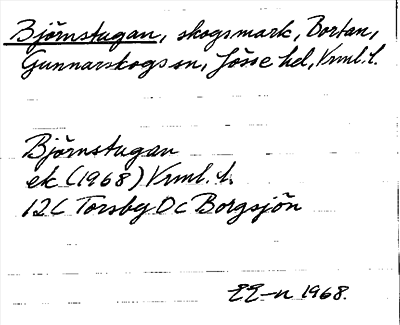 Björnstugan, skogsmark, Bortan,
Gunnarskogs sn, Jösse hd, Vrml. l.
Björnstugan
ek (1968) Vrml. l.
12C Torsby Dc Borgsjön
EE-n 1968.